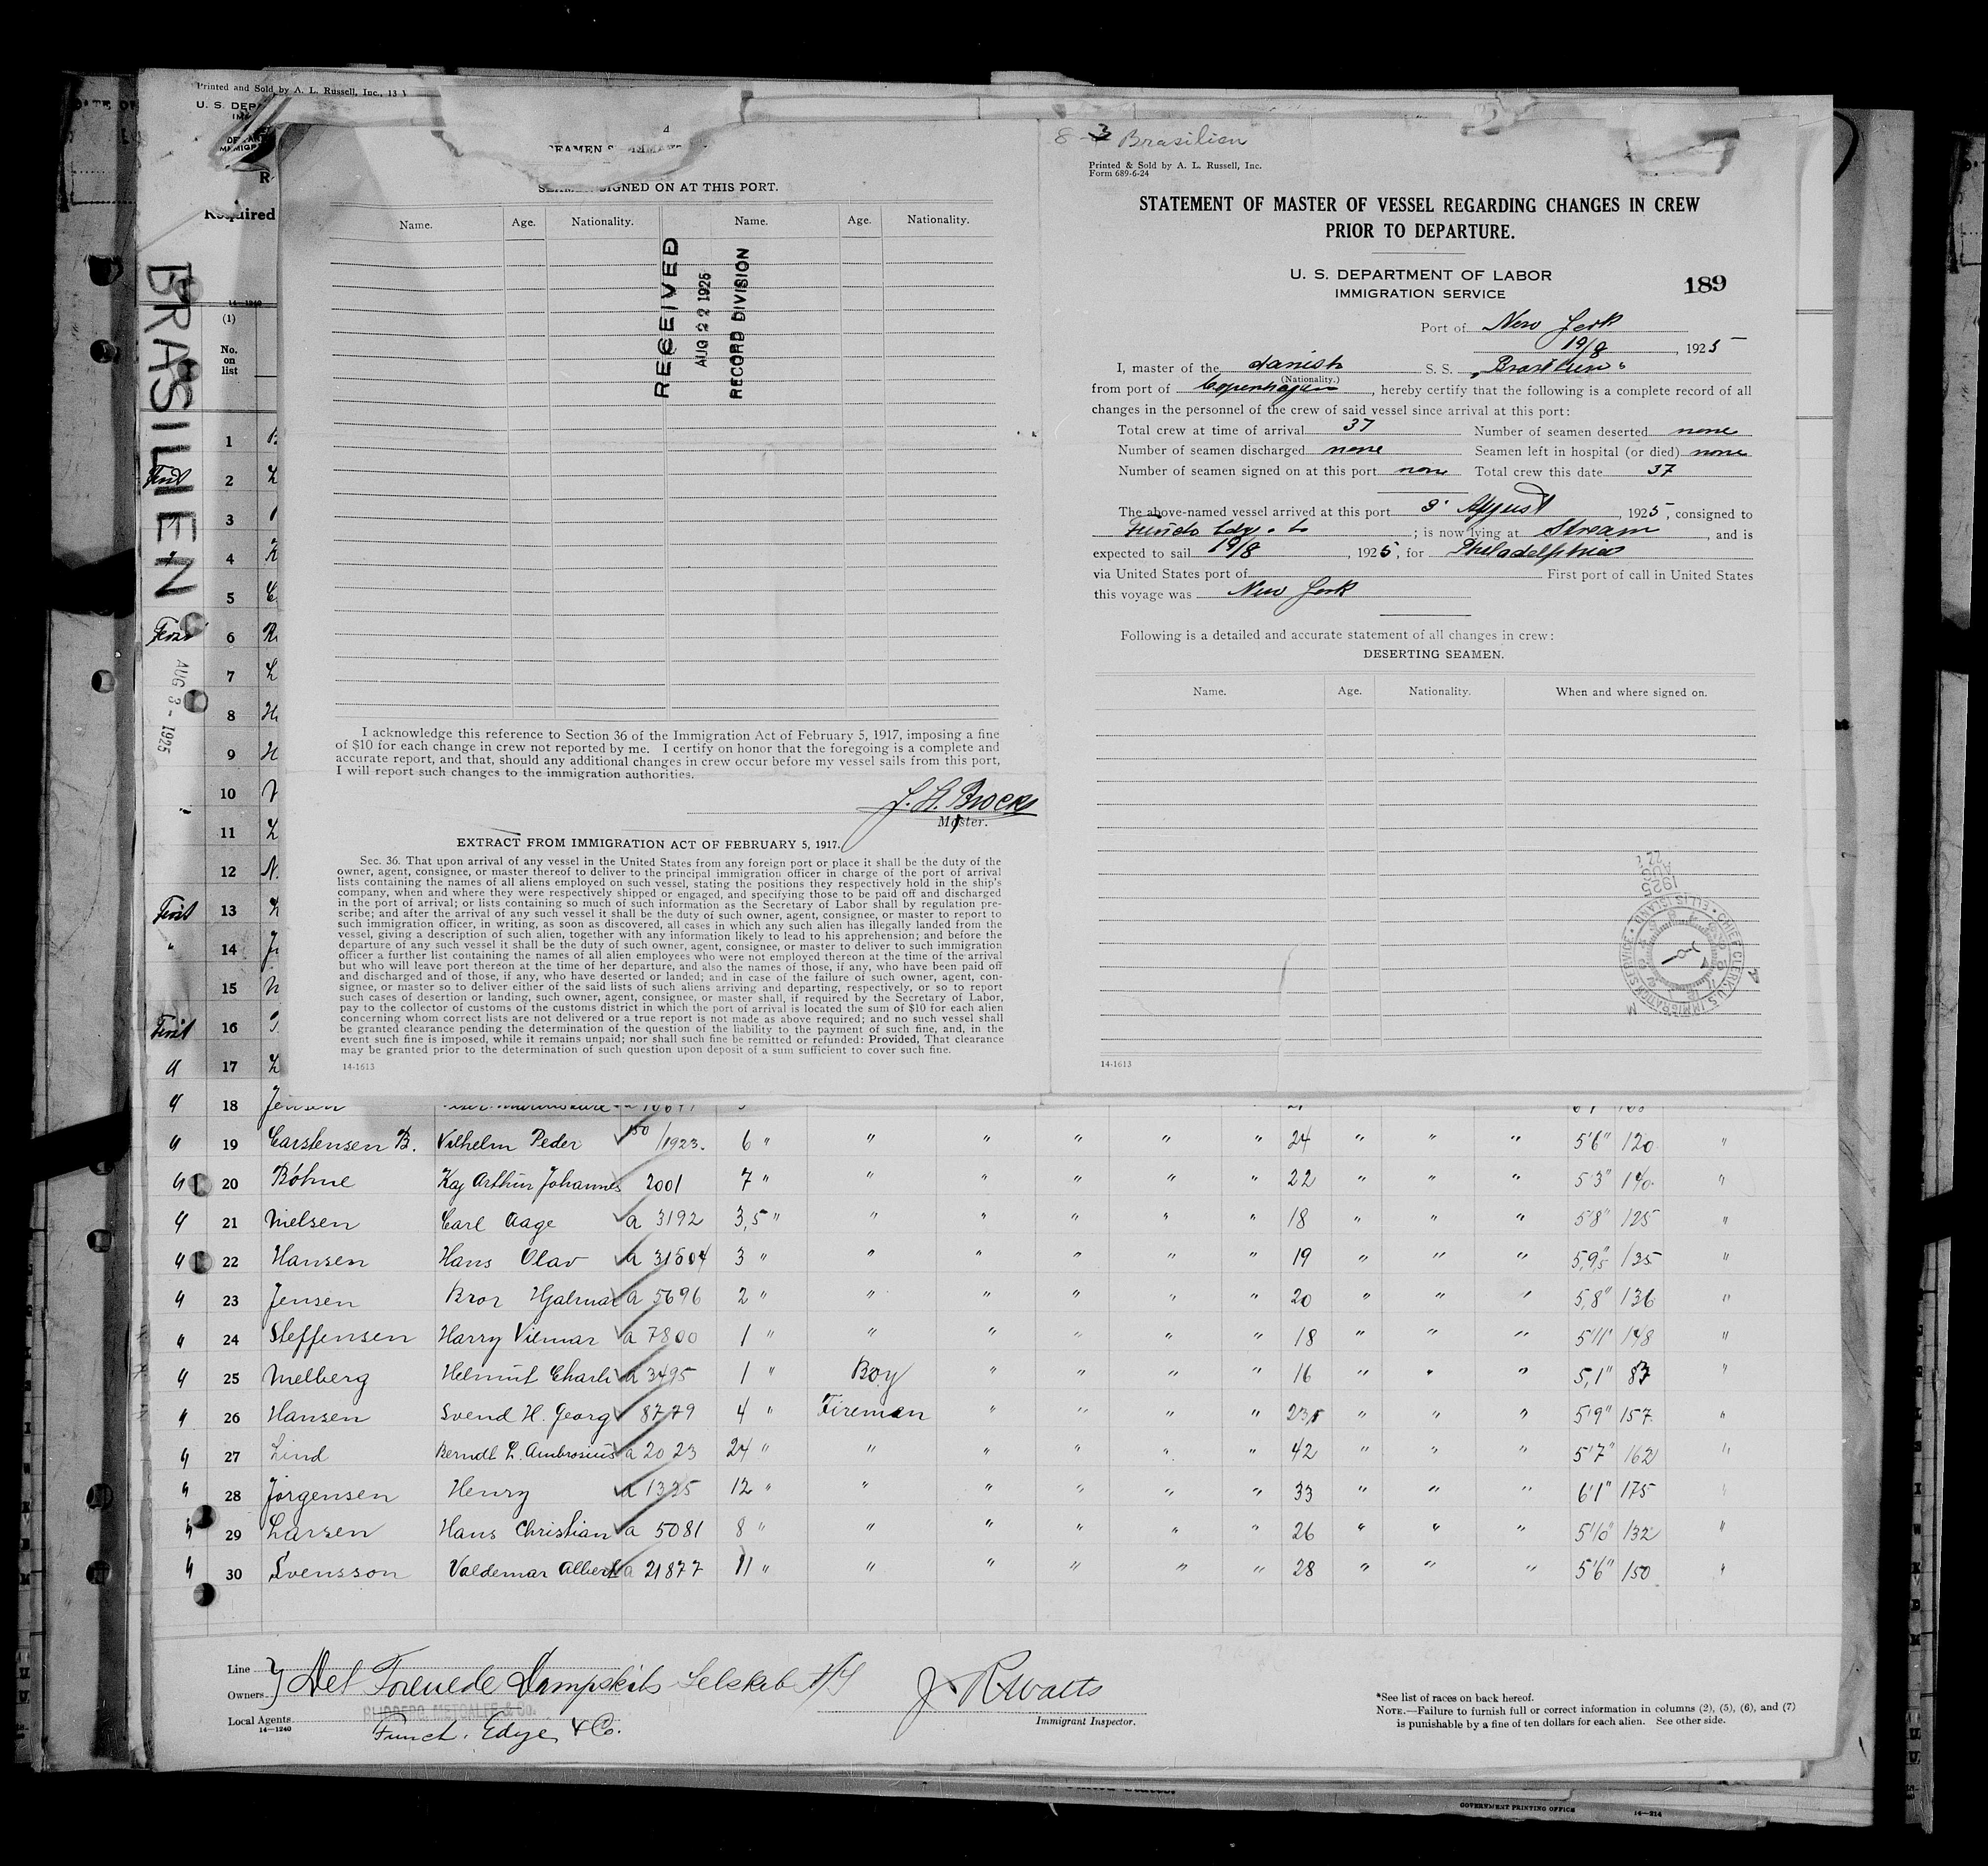 Printed and Sold by A. L. Russell, Inc., 13
U. S. DEP
Required
BRASILIEN
AUG 3 - 1925
14—1240
(1)
No. on list
1
First 2
3
4
5
First 6
7
8
9
10
11
12
First 13
" 14
15
First 16
" 17
SIGNED ON AT THIS PORT.
Name. Age. Nationality. Name. Age. Nationality.
RECEIVED
AUG 22 1925
RECORD DIVISION
I acknowledge this reference to Section 36 of the Immigration Act of February 5, 1917, imposing a fine
of $10 for each change in crew not reported by me. I certify on honor that the foregoing is a complete and
accurate report, and that, should any additional changes in crew occur before my vessel sails from this port,
I will report such changes to the immigration authorities.
Master.
EXTRACT FROM IMMIGRATION ACT OF FEBRUARY 5, 1917.
Sec. 36. That upon arrival of any vessel in the United States from any foreign port or place it shall be the duty of the
owner, agent, consignee, or master thereof to deliver to the principal immigration officer in charge of the port of arrival
lists containing the names of all aliens employed on such vessel, stating the positions they respectively hold in the ship's
company, when and where they were respectively shipped or engaged, and specifying those to be paid off and discharged
in the port of arrival; or lists containing so much of such information as the Secretary of Labor shall by regulation pre-
scribe; and after the arrival of any such vessel it shall be the duty of such owner, agent, consignee, or master to report to
such immigration officer, in writing, as soon as discovered, all cases in which any such alien has illegally landed from the
vessel, giving a description of such alien, together with any information likely to lead to his apprehension; and before the
departure of any such vessel it shall be the duty of such owner, agent, consignee, or master to deliver to such immigration
officer a further list containing the names of all alien employees who were not employed thereon at the time of the arrival
but who will leave port thereon at the time of her departure, and also the names of those, if any, who have been paid off
and discharged and of those, if any, who have deserted or landed; and in case of the failure of such owner, agent, con-
signee, or master so to deliver either of the said lists of such aliens arriving and departing, respectively, or so to report
such cases of desertion or landing, such owner, agent, consignee, or master shall, if required by the Secretary of Labor,
pay to the collector of customs of the customs district in which the port of arrival is located the sum of $10 for each alien
concerning whom correct lists are not delivered or a true report is not made as above required; and no such vessel shall
be granted clearance pending the determination of the question of the liability to the payment of such fine, and, in the
event such fine is imposed, while it remains unpaid; nor shall such fine be remitted or refunded: Provided, That clearance
may be granted prior to the determination of such question upon deposit of a sum sufficient to cover such fine.
14-1613
8-3 Brasilien
Printed & Sold by A. L. Russell, Inc.
Form 689-6-24
STATEMENT OF MASTER OF VESSEL REGARDING CHANGES IN CREW
PRIOR TO DEPARTURE.
U. S. DEPARTMENT OF LABOR
IMMIGRATION SERVICE
189
Port of New York
19/8, 1925
I, master of the danish S. S. "Brasilien"
(Nationality.)
from port of Copenhagen, hereby certify that the following is a complete record of all
changes in the personnel of the crew of said vessel since arrival at this port:
Total crew at time of arrival 37 Number of seamen deserted none
Number of seamen discharged none Seamen left in hospital (or died) none
Number of seamen signed on at this port none Total crew this date 37
The above-named vessel arrived at this port 3' August, 1925, consigned to
; is now lying at Stream, and is
expected to sail 19/8, 1925, for Philadelphia
via United States port of First port of call in United States
this voyage was New York
Following is a detailed and accurate statement of all changes in crew:
DESERTING SEAMEN.
Name. Age. Nationality. When and where signed on.
CHIEF CLERK, U.S. IMMIGRATION SERVICE • ELLIS ISLAND •
AUG 22 1925
14-1613
" 18 Jensen
" 19 Carstensen B. Vilhelm Peder 150/1923. 6 " " " " " " 24 " " " 5'6" 120 "
" 20 Böhne Kaj Arthur Johannes 2001 7 " " " " " " 22 " " " 5'3" 140 "
" 21 Nielsen Carl Aage a 3192 3,5 " " " " " " 18 " " " 5'8" 125 "
" 22 Hansen Hans Olav a 31504 3 " " " " " " 19 " " " 5,9,5" 135 "
" 23 Jensen Bror Hjalmar a 5696 2 " " " " " " 20 " " " 5,8" 136 "
" 24 Steffensen Harry Vilmar a 7800 1 " " " " " " 18 " " " 5'11" 148 "
" 25 Melberg Helmut Charli a 3495 1 " Boy " " " " 16 " " " 5,1" 83 "
" 26 Hansen Svend H. Georg 8779 4 " Fireman " " " " 23 " " " 5'9" 157 "
" 27 Lind Berndt L. Ambrosius a 2023 24 " " " " " " 42 " " " 5'7" 162 "
" 28 Jörgensen Henry a 1335 12 " " " " " " 33 " " " 6'1" 175 "
" 29 Larsen Hans Christian a 5081 8 " " " " " " 26 " " " 5'10" 132 "
" 30 Svensson Valdemar Albert a 21877 11 " " " " " " 28 " " " 5'6" 150 "
Line
Owners Det Forenede Dampskibs Selskab A/S
Local Agents Funch, Edye & Co.
14—1240
J R Watts
Immigrant Inspector.
*See list of races on back hereof.
NOTE.—Failure to furnish full or correct information in columns (2), (5), (6), and (7)
is punishable by a fine of ten dollars for each alien. See other side.
GOVERNMENT PRINTING OFFICE 14—214